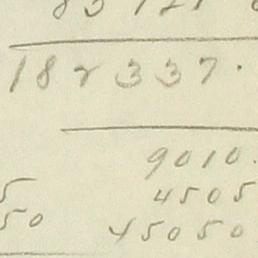 182337.
9010.
5 4505
50 45050